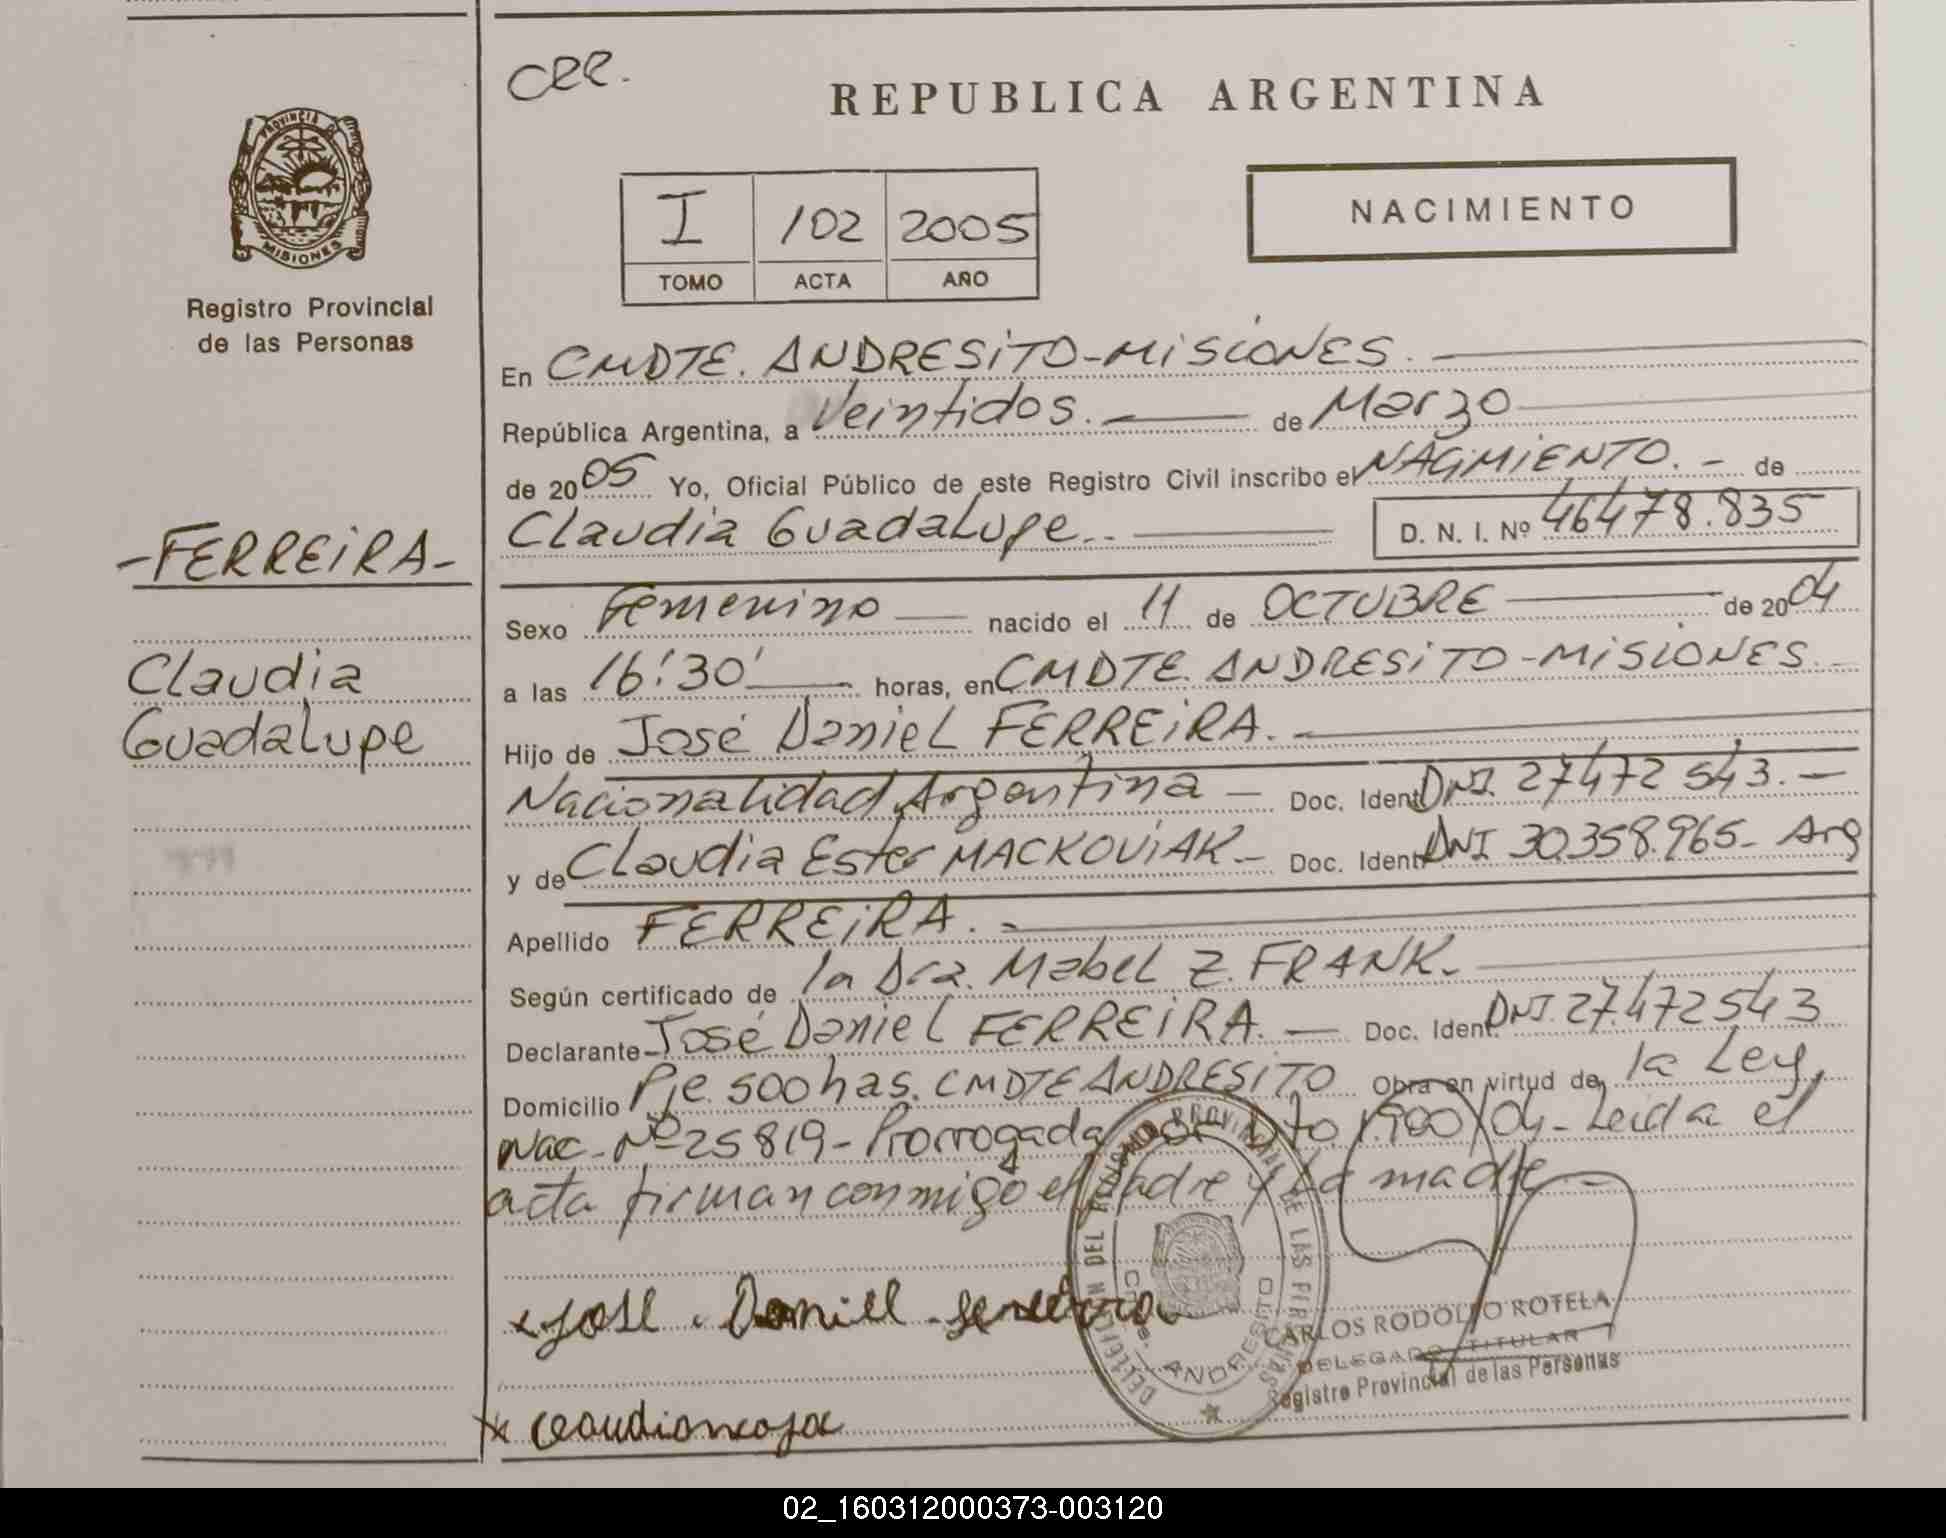 CRR.
REPUBLICA ARGENTINA
PROVINCIA DE
MISIONES
Registro Provincial
de las Personas
I 102 2005
TOMO ACTA AÑO
NACIMIENTO
En CMDTE. ANDRESITO-MISIONES.
República Argentina, a Veintidos. de Marzo
de 2005 Yo, Oficial Público de este Registro Civil inscribo el NACIMIENTO. - de
Claudia Guadalupe.. D. N. I. Nº 46478.835
-FERREIRA-
Claudia
Guadalupe
Sexo Femenino nacido el 11 de OCTUBRE de 2004
a las 16:30' horas, en CMDTE. ANDRESITO-MISIONES.-
Hijo de José Daniel FERREIRA.-
Nacionalidad Argentina - Doc. Ident. DNI. 27472543.-
y de Claudia Ester MACKOVIAK- Doc. Ident. DNI 30.358.965- Arg
Apellido FERREIRA.-
Según certificado de la Dra. Mabel Z. FRANK.
Declarante José Daniel FERREIRA.- Doc. Ident. DNI. 27.472543
Domicilio Pje. 500 has. CMDTE ANDRESITO Obra en virtud de la Ley,
Nac. Nº 25819- Prorrogada por Dto 1.900/04- Leida el
acta firman conmigo el padre y la madre-
x Jose Daniel ferreira
DELEGACION DEL REGISTRO PROVINCIAL DE LAS PERSONAS
CMDTE. ANDRESITO
CARLOS RODOLFO ROTELA
DELEGADO TITULAR
Registro Provincial de las Personas
02_160312000373-003120